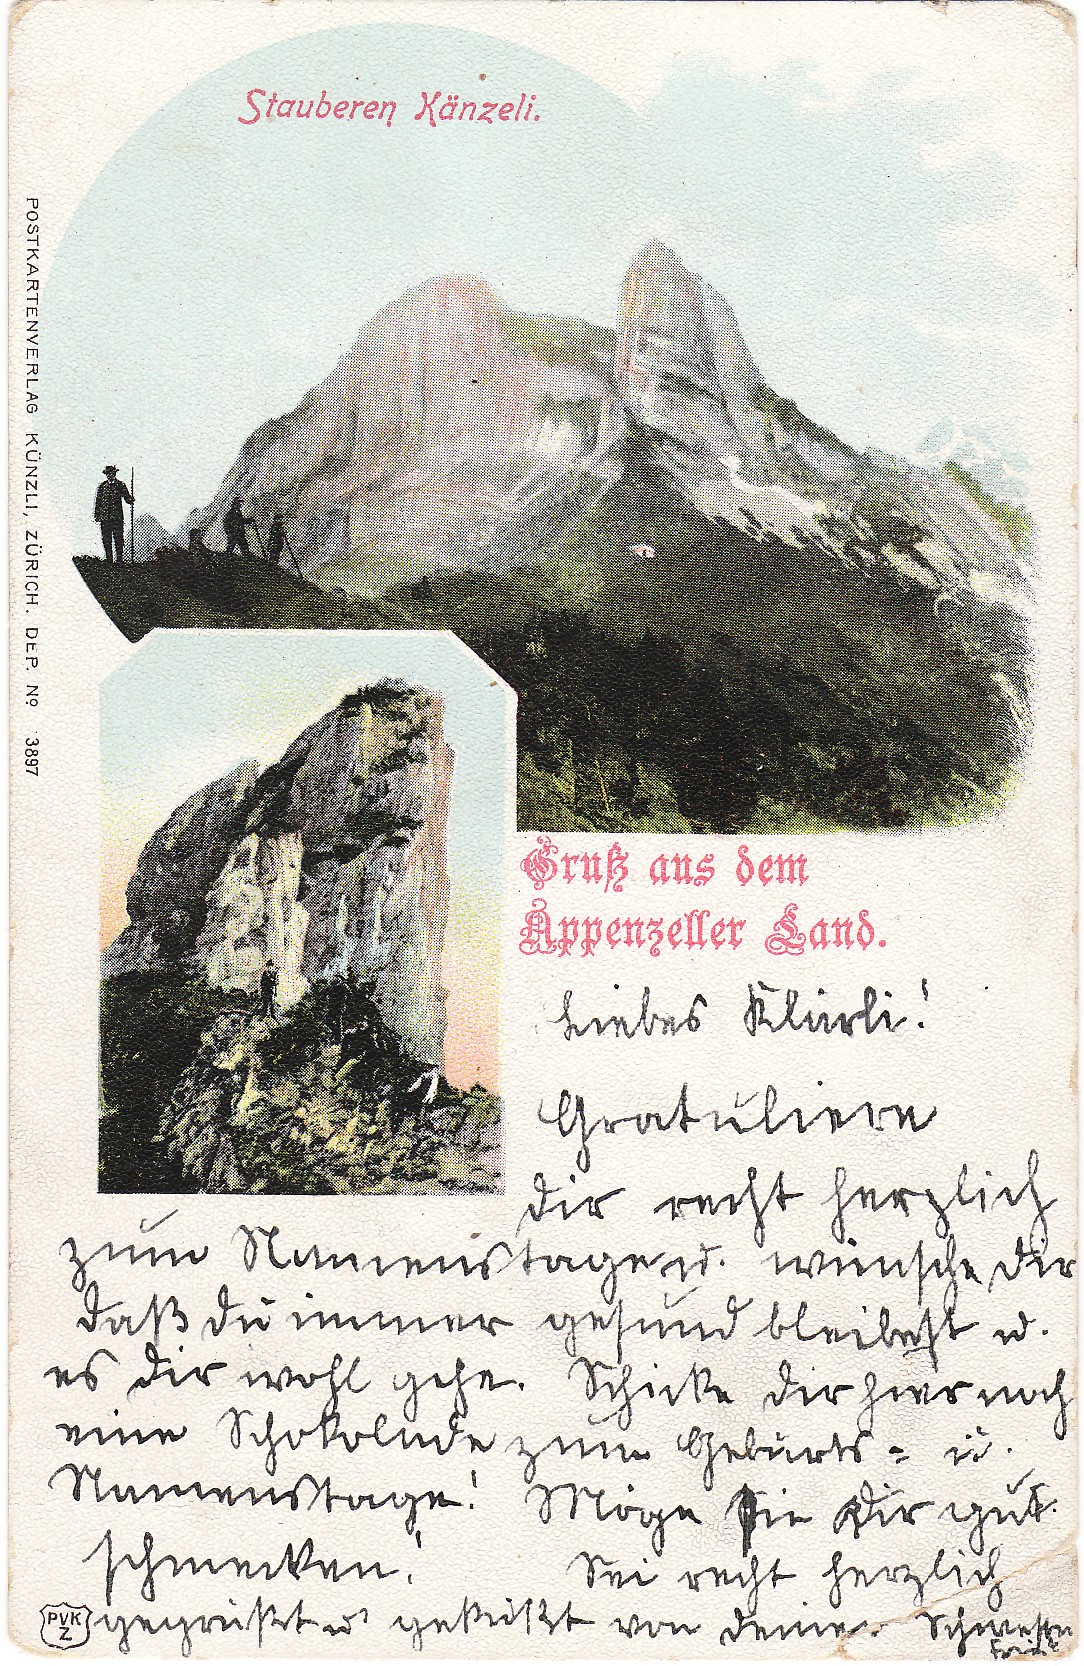 Stauberen Känzeli.
POSTKARTENVERLAG KÜNZLI, ZÜRICH. DEP. Nº 3897
Gruß aus dem
Appenzeller Land.
Liebes Klärli!
Gratuliere
dir recht herzlich
zum Namenstage u. wünsche dir
daß du immer gesund bleibest u.
es dir wohl gehe. Schicke dir hier noch
eine Schokolade zum Geburts= u.
Namenstage! Möge sie dir gut
schmecken! Sei recht herzlich
gegrüßt u. geküßt von deiner Schwester
PVK
Z